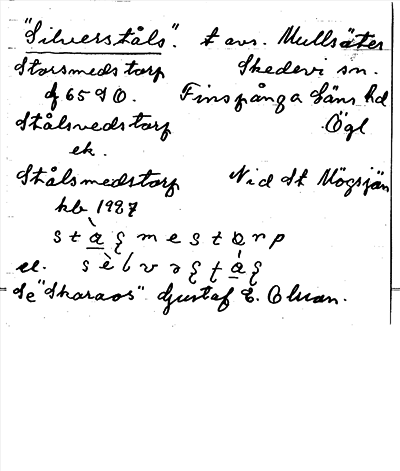 "Silverståls". t avs. Mullsäter
Storsmedstorp Skedevi sn.
Finspånga läns hd
Stålsvedstorp Ögl
ek.
Stålsmedstorp Vid St Mögsjön
kb 1927
el.
Se "Skaraos" Gustaf E. Olsson.